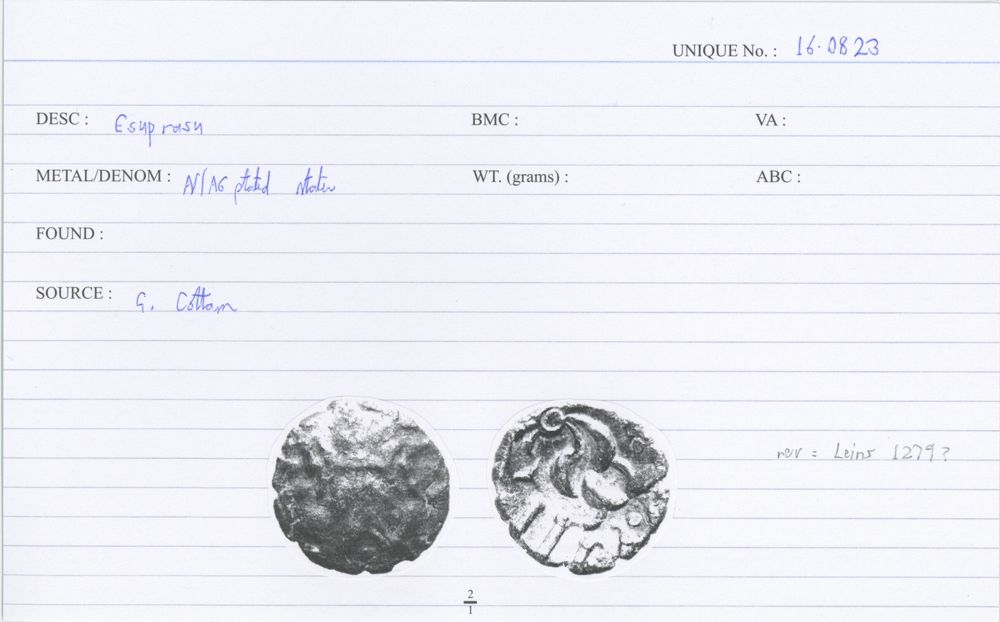 UNIQUE No. : 16.0823
DESC : Esuprasu BMC : VA :
METAL/DENOM : AV/AG plated stater WT. (grams) : ABC :
FOUND :
SOURCE : G. Cottam
rev = Leins 1279?
2
1